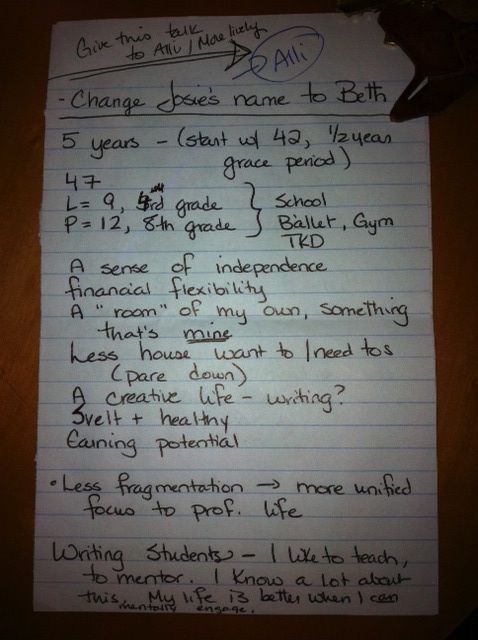 Give this talk
to Alli / More lively
Alli
- Change Josie's name to Beth
5 years - (start w/ 42, 1/2 year
grace period)
47
L = 9, 4th grade
P = 12, 8th grade
School
Ballet, Gym
TKD
A sense of independence
financial flexibility
A "room" of my own, something
that's mine
Less house want to / need tos
(pare down)
A creative life - writing?
Svelt + healthy
Earning potential
• Less fragmentation → more unified
focus to prof. life
Writing Students - I like to teach,
to mentor. I know a lot about
this. My life is better when I can
mentally engage.